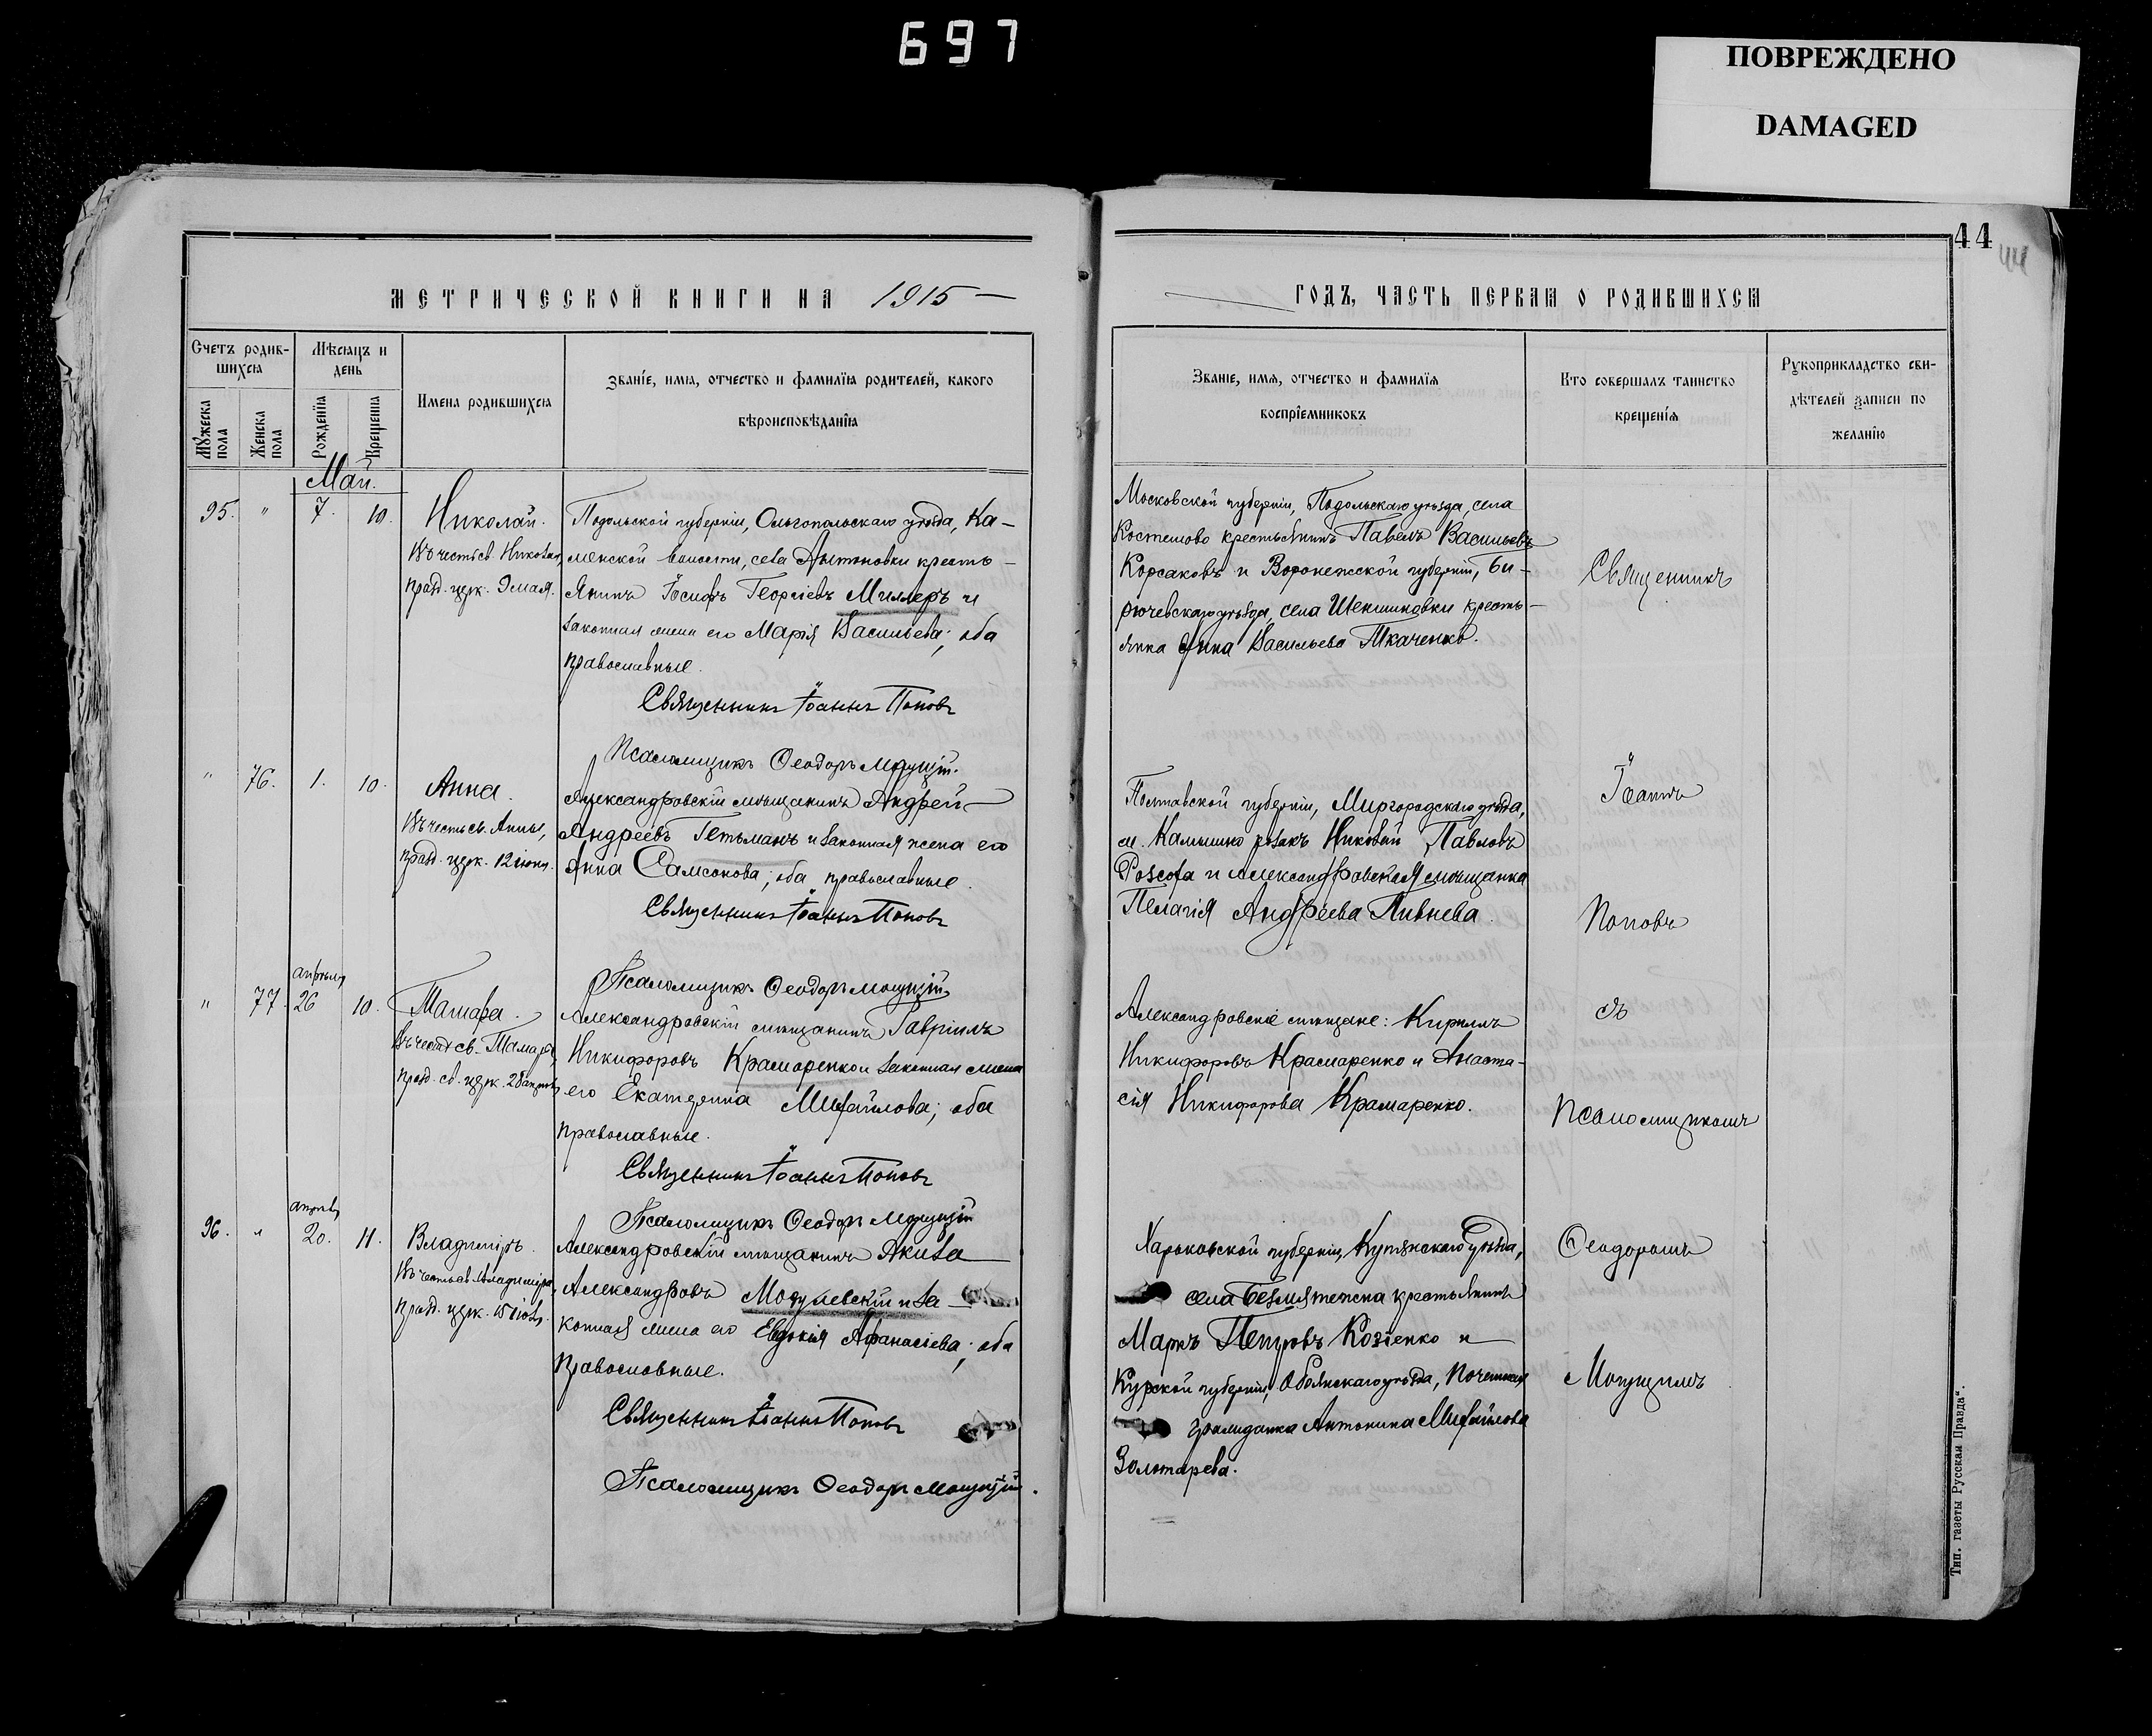 697
ПОВРЕЖДЕНО
DAMAGED
44
44
МЕТРИЧЕСКОЙ КНИГИ НА 1915
ГОДЪ, ЧАСТЬ ПЕРВАЯ О РОДИВШИХСЯ
Счетъ родившихся
Мужеска пола
Женска пола
Мѣсяцъ и день
Рожденїя
Крещенїя
Имена родившихся
Званїе, имя, отчество и фамилїя родителей, какого
вѣроисповѣданїя
Званїе, имя, отчество и фамилїя
воспрїемниковъ
Кто совершалъ таинство
крещенїя
Рукоприкладство сви-
дѣтелей записи по
желанїю
Май.
95. " 7. 10.
Николай.
Въ честь св. Николая,
празд. церк. 9 мая.
Подольской губерніи, Ольгопольскаго уѣзда, Ка-
менской волости, села Антоновки кресть-
янинъ Іосифъ Георгіевъ Миллеръ и
законная жена его Марія Васильева; оба
православные.
Священникъ Іоаннъ Поповъ
Псаломщикъ Ѳеодоръ
Московской губерніи, Подольскаго уѣзда, села
Костешово крестьянинъ Павелъ Васильевъ
Корсаковъ и Воронежской губерніи, Би-
рюченскаго уѣзда, села кресть-
янка Анна Васильева Ткаченко.
Священникъ
" 76. 1. 10.
Анна.
Въ честь св. Анны,
празд. церк. 12 іюня.
Александровскій мѣщанинъ Андрей
Андреевъ Гетьманъ и законная жена его
Анна Самсонова; оба православные.
Священникъ Іоаннъ Поповъ
Псаломщикъ Ѳеодоръ
Полтавской губерніи, Миргородскаго уѣзда,
м. Камышно козакъ Николай Павловъ
и Александровская мѣщанка
Пелагія Андреева Пивнева.
Іоаннъ
Поповъ
апрѣля
" 77. 26 10.
Тамара.
Въ честь св. Тамары,
празд. св. церк. апрѣля
Александровскій мѣщанинъ Гавріилъ
Никифоровъ Крамаренко и законная жена
его Екатерина Михайлова; оба
православные.
Священникъ Іоаннъ Поповъ
Псаломщикъ Ѳеодоръ
Александровскіе мѣщане: Кириллъ
Никифоровъ Крамаренко и Анаста-
сія Никифорова Крамаренко.
съ
Псаломщикомъ
апрѣля
96. " 20. 11.
Владиміръ.
Въ честь св. Владиміра,
празд. церк. 15 іюля.
Александровскій мѣщанинъ Акила
Александровъ и за-
конная жена его Евдокія Афанасіева; оба
православные.
Священникъ Іоаннъ Поповъ
Псаломщикъ Ѳеодоръ
Харьковской губерніи, Купянскаго уѣзда,
села крестьянинъ
Маркъ Петровъ и
Курской губерніи, Обоянскаго уѣзда, почетная
гражданка Антонина Михайлова
Золотарева.
Ѳеодоромъ
Тип. газеты Русская Правда".